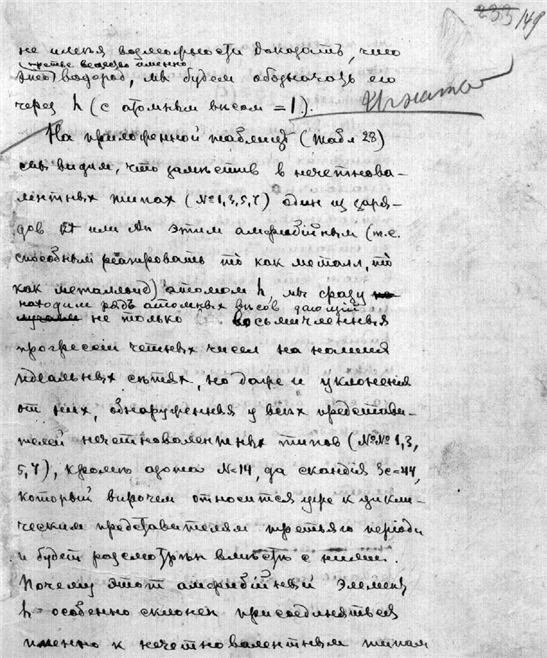 233 149
не имѣя возможности доказать, что
третье вещество именно
это водород, мы будем обозначать его
через h (с атомным весом =1).
На приложенной таблицѣ (табл 28)
мы видим, что замѣстив в нечетнова-
лентных типах (№ 1,3,5,7) один из заря-
дов Ct или An этим амфибійным (т.е.
способным реагировать то как металл, то
как металлоид) атомом h, мы сразу
находим рядъ атомных вѣсов, дающій
не только восьмичленныя
прогрессіи четных чисел на наших
идеальных сѣтях, но даже и уклоненія
от них, обнаруженныя у всѣх представи-
телей нечетновалентных типов (№№ 1,3,
5,7), кромѣ азота N=14, да скандія Sc=44,
который впрочем относится уже к цикли-
ческим представителям третьяго періода
и будет разсмотрѣн вмѣстѣ с ними.
Почему этот амфибійный элемент
h особенно склонен присоединяться
именно к нечетновалентным типам